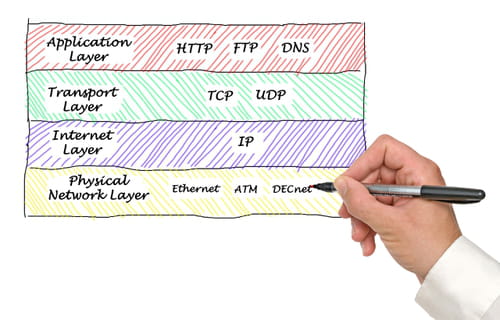 Application Layer HTTP FTP DNS
Transport Layer TCP UDP
Internet Layer IP
Physical Network Layer Ethernet ATM DECnet